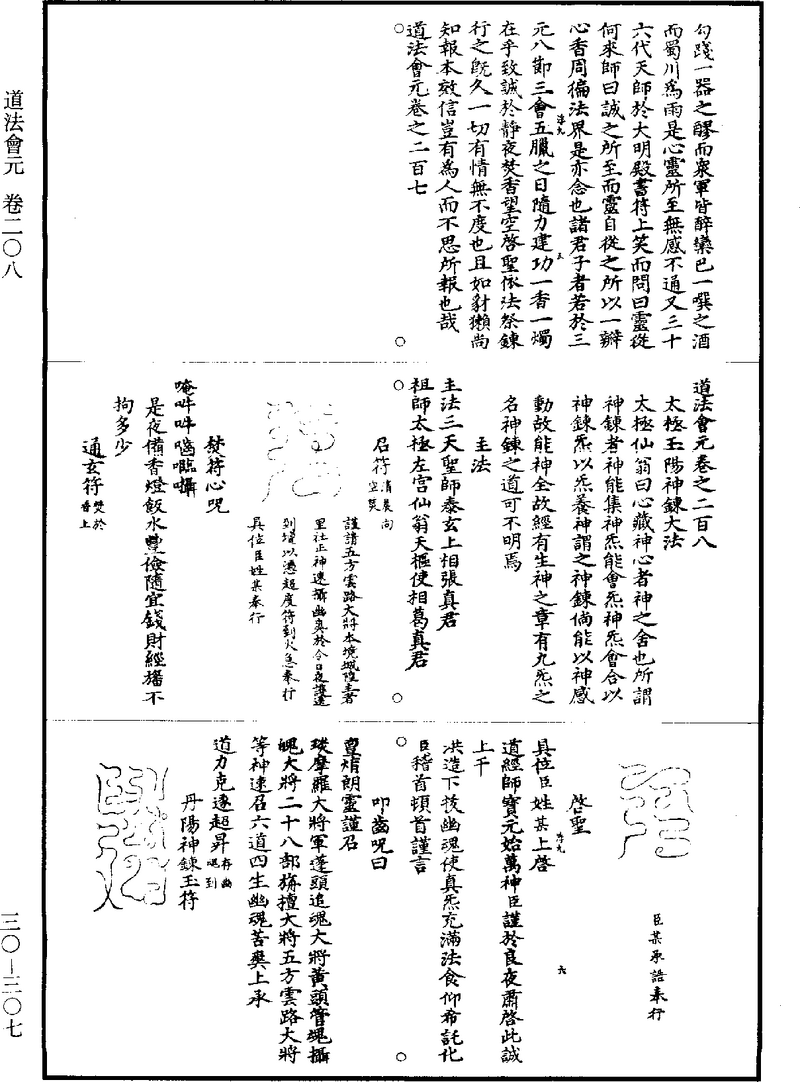 道法會元　卷二〇八
三〇—三〇七
勾踐一器之醪而衆軍皆醉欒巴一噀之酒
而蜀川爲雨是心靈所至無感不通又三十
六代天師於大明殿書符上笑而問曰靈從
何來師曰誠之所至而靈自從之所以一瓣
心香周徧法界是亦念也諸君子者若於三
元八節三會五臘之日隨力建功一香一燭
在乎致誠於靜夜焚香望空啓聖依法祭鍊
行之旣久一切有情無不度也且如豺獺尚
知報本效信豈有爲人而不思所報也哉
道法會元卷之二百七
道法會元卷之二百八
太極玉陽神鍊大法
太極仙翁曰心藏神心者神之舍也所謂
神鍊者神能集神炁能會炁神炁會合以
神鍊炁以炁養神謂之神鍊倘能以神感
動故能神全故經有生神之章有九炁之
名神鍊之道可不明焉
主法
主法三天聖師泰玄上相張真君
祖師太極左宮仙翁天樞使相葛真君
召符清晨向空焚
謹請五方雲路大將本境城隍主者
里社正神速攝幽爽於今日夜讓達
到壇以憑超度符到火急奉行
具位臣姓某奉行
焚符心咒
唵吽吽𠺁𠷈囁
是夜備香燈飯水豐儉隨宜錢財經旛不
拘多少
通玄符焚於香上
臣某承誥奉行
啓聖
具位臣姓某上啓
道經師寶元始萬神臣謹於良夜肅啓此誠
上干
洪造下技幽魂使真炁充滿法食仰希託化
臣稽首頓首謹言
叩齒咒曰
亶婧朗靈謹召
琰摩羅大將軍蓬頭追魂大將黃頭管魂攝
魄大將二十八部旃檀大將五方雲路大將
等神速召六道四生幽魂苦爽上承
道力克逐超昇存幽魂到
丹陽神鍊玉符